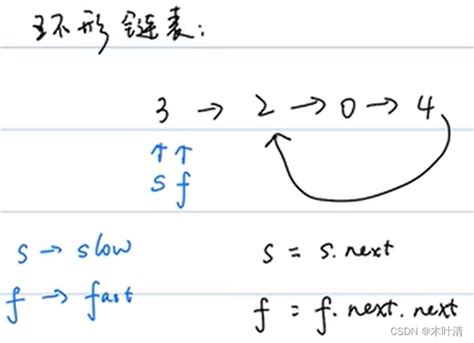 环形链表:
3 → 2 → 0 → 4
↑ ↑
s f
s → slow
s = s.next
f → fast
f = f.next.next
CSDN @木叶清